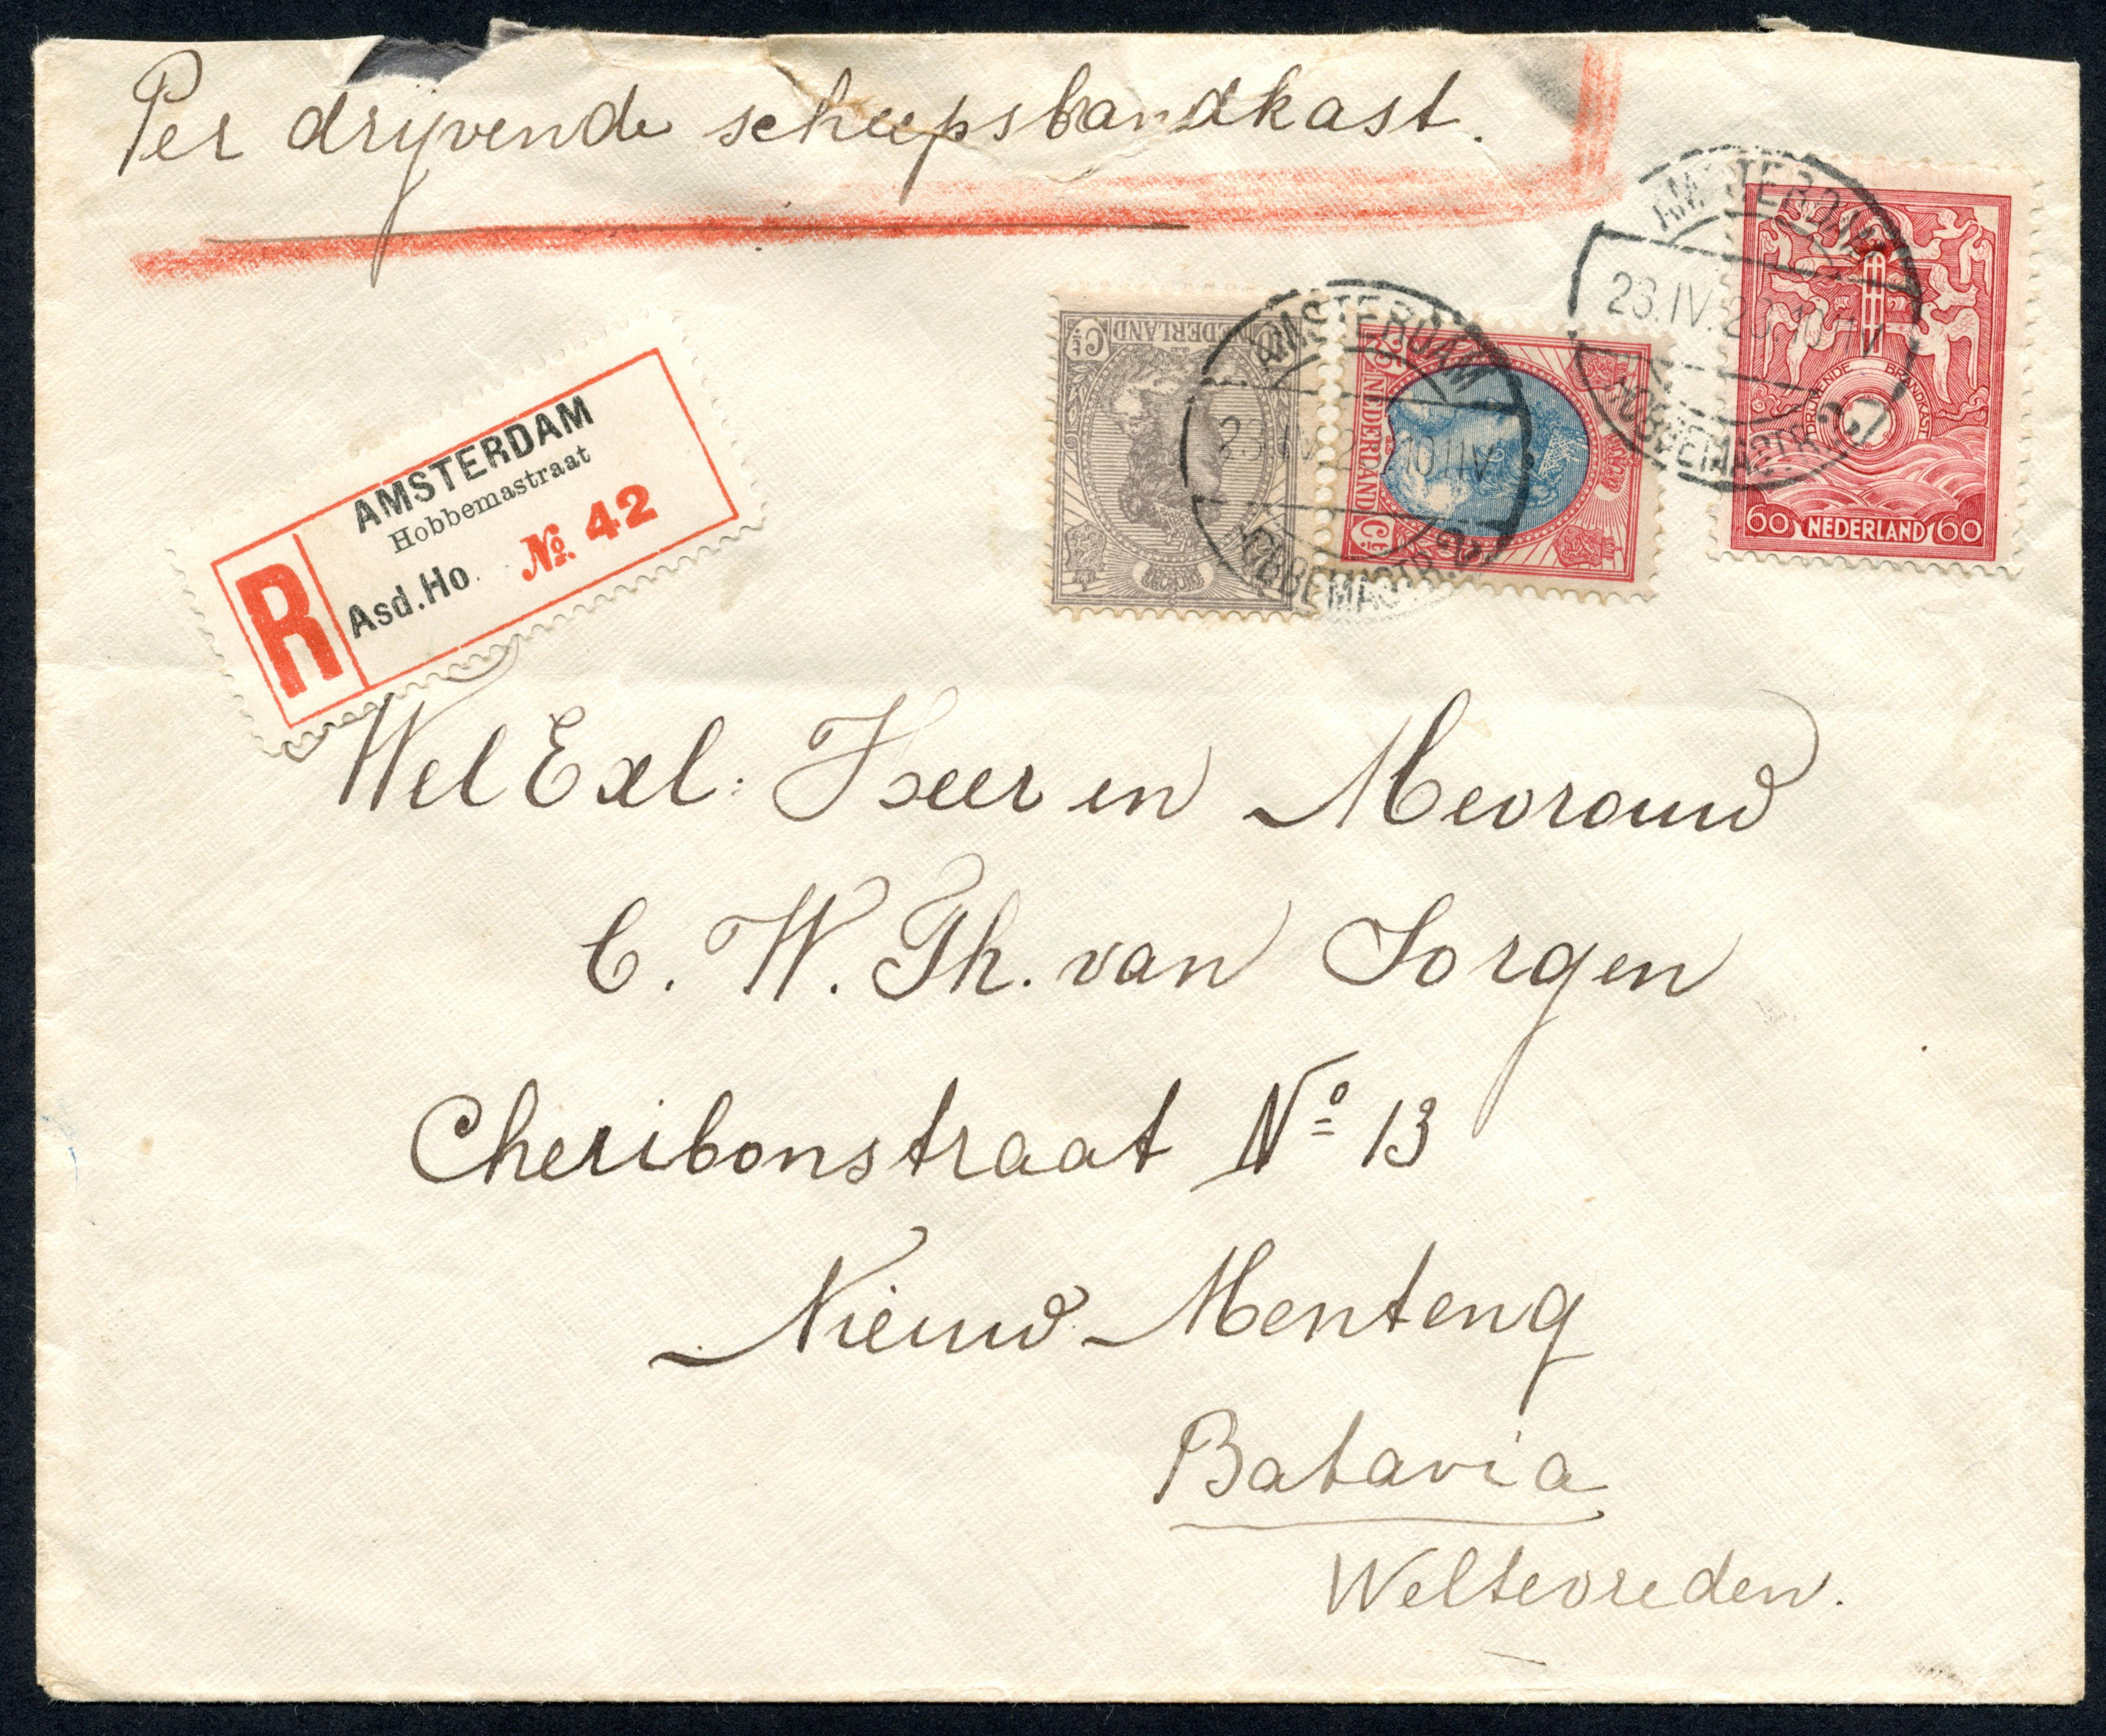 Per drijvende scheepsbandkast.
AMSTERDAM
Hobbemastraat
Asd.Ho. No. 42
R
NEDERLAND
Ct
AMSTERDAM
HOBBEMASTR.
NEDERLAND
Ct
AMSTERDAM
23.IV.23.10-11V
HOBBEMASTR.
DRIJVENDE BRANDKAST
60 NEDERLAND 60
Wel Exl: Heer en Mevrouw
C. W. Th. van Sorgen
Cheribonstraat No 13
Nieuw Menteng
Batavia
Weltevreden.